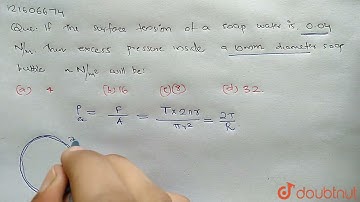 121606674
Que: If the surface tension of a soap water is 0.04
N/m. then excess pressure inside a 10mm diameter soap
bubble in N/m² will be:
(a) 4 (b) 16 (c) (8) (d) 32.
P = F/A = T×2πr/πr² = 2T/R
doubtnut